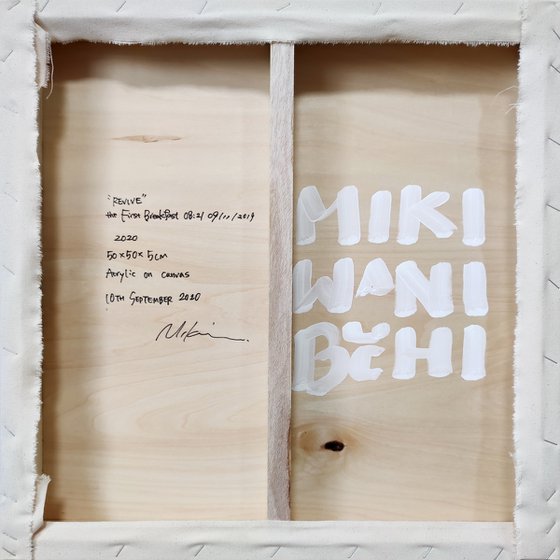 "REVIVE"
the First Breakfast 08:21 09/11/2019
2020
50×50×5cm
Acrylic on canvas
10TH SEPTEMBER 2020
Miki
MIKI
WANI
BUCHI